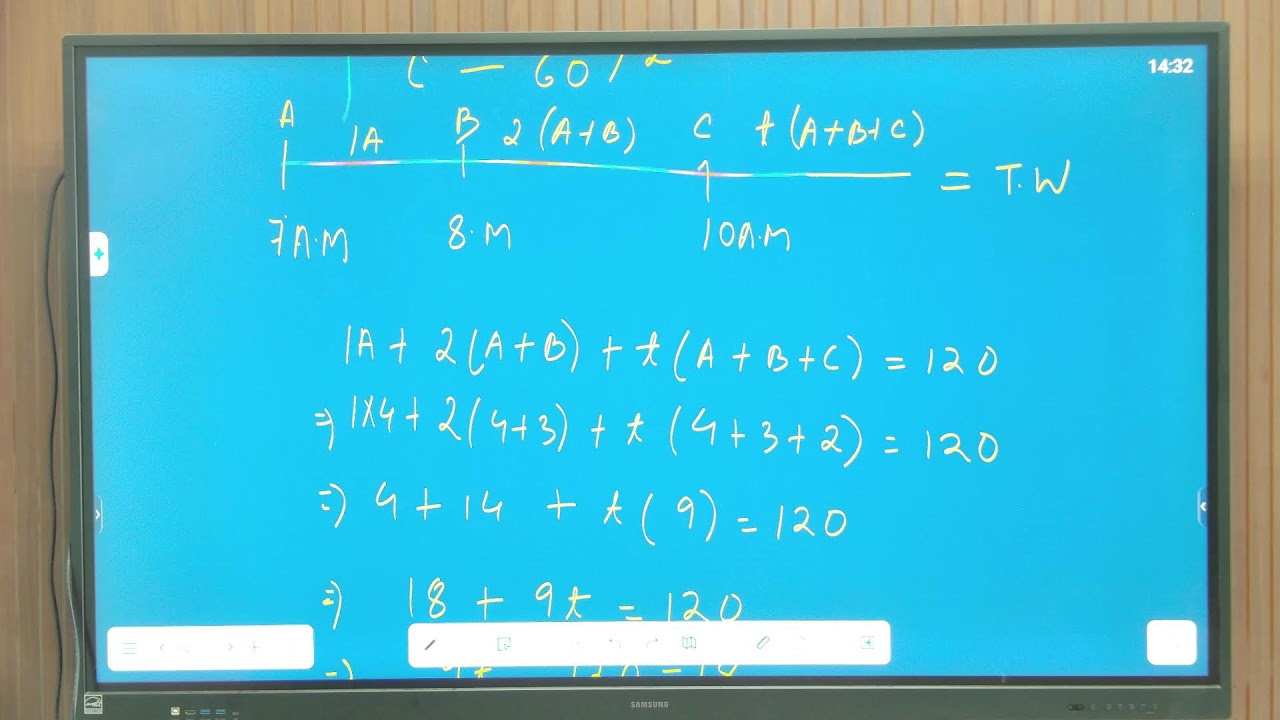 14:32
C - 60 / 2
A 1A B 2 (A+B) C t (A+B+C)
= T.W
7A.M 8.M 10A.M
1A + 2(A+B) + t(A+B+C) = 120
=) 1×4 + 2(4+3) + t (4+3+2) = 120
=) 4 + 14 + t(9) = 120
=) 18 + 9t = 120
SAMSUNG